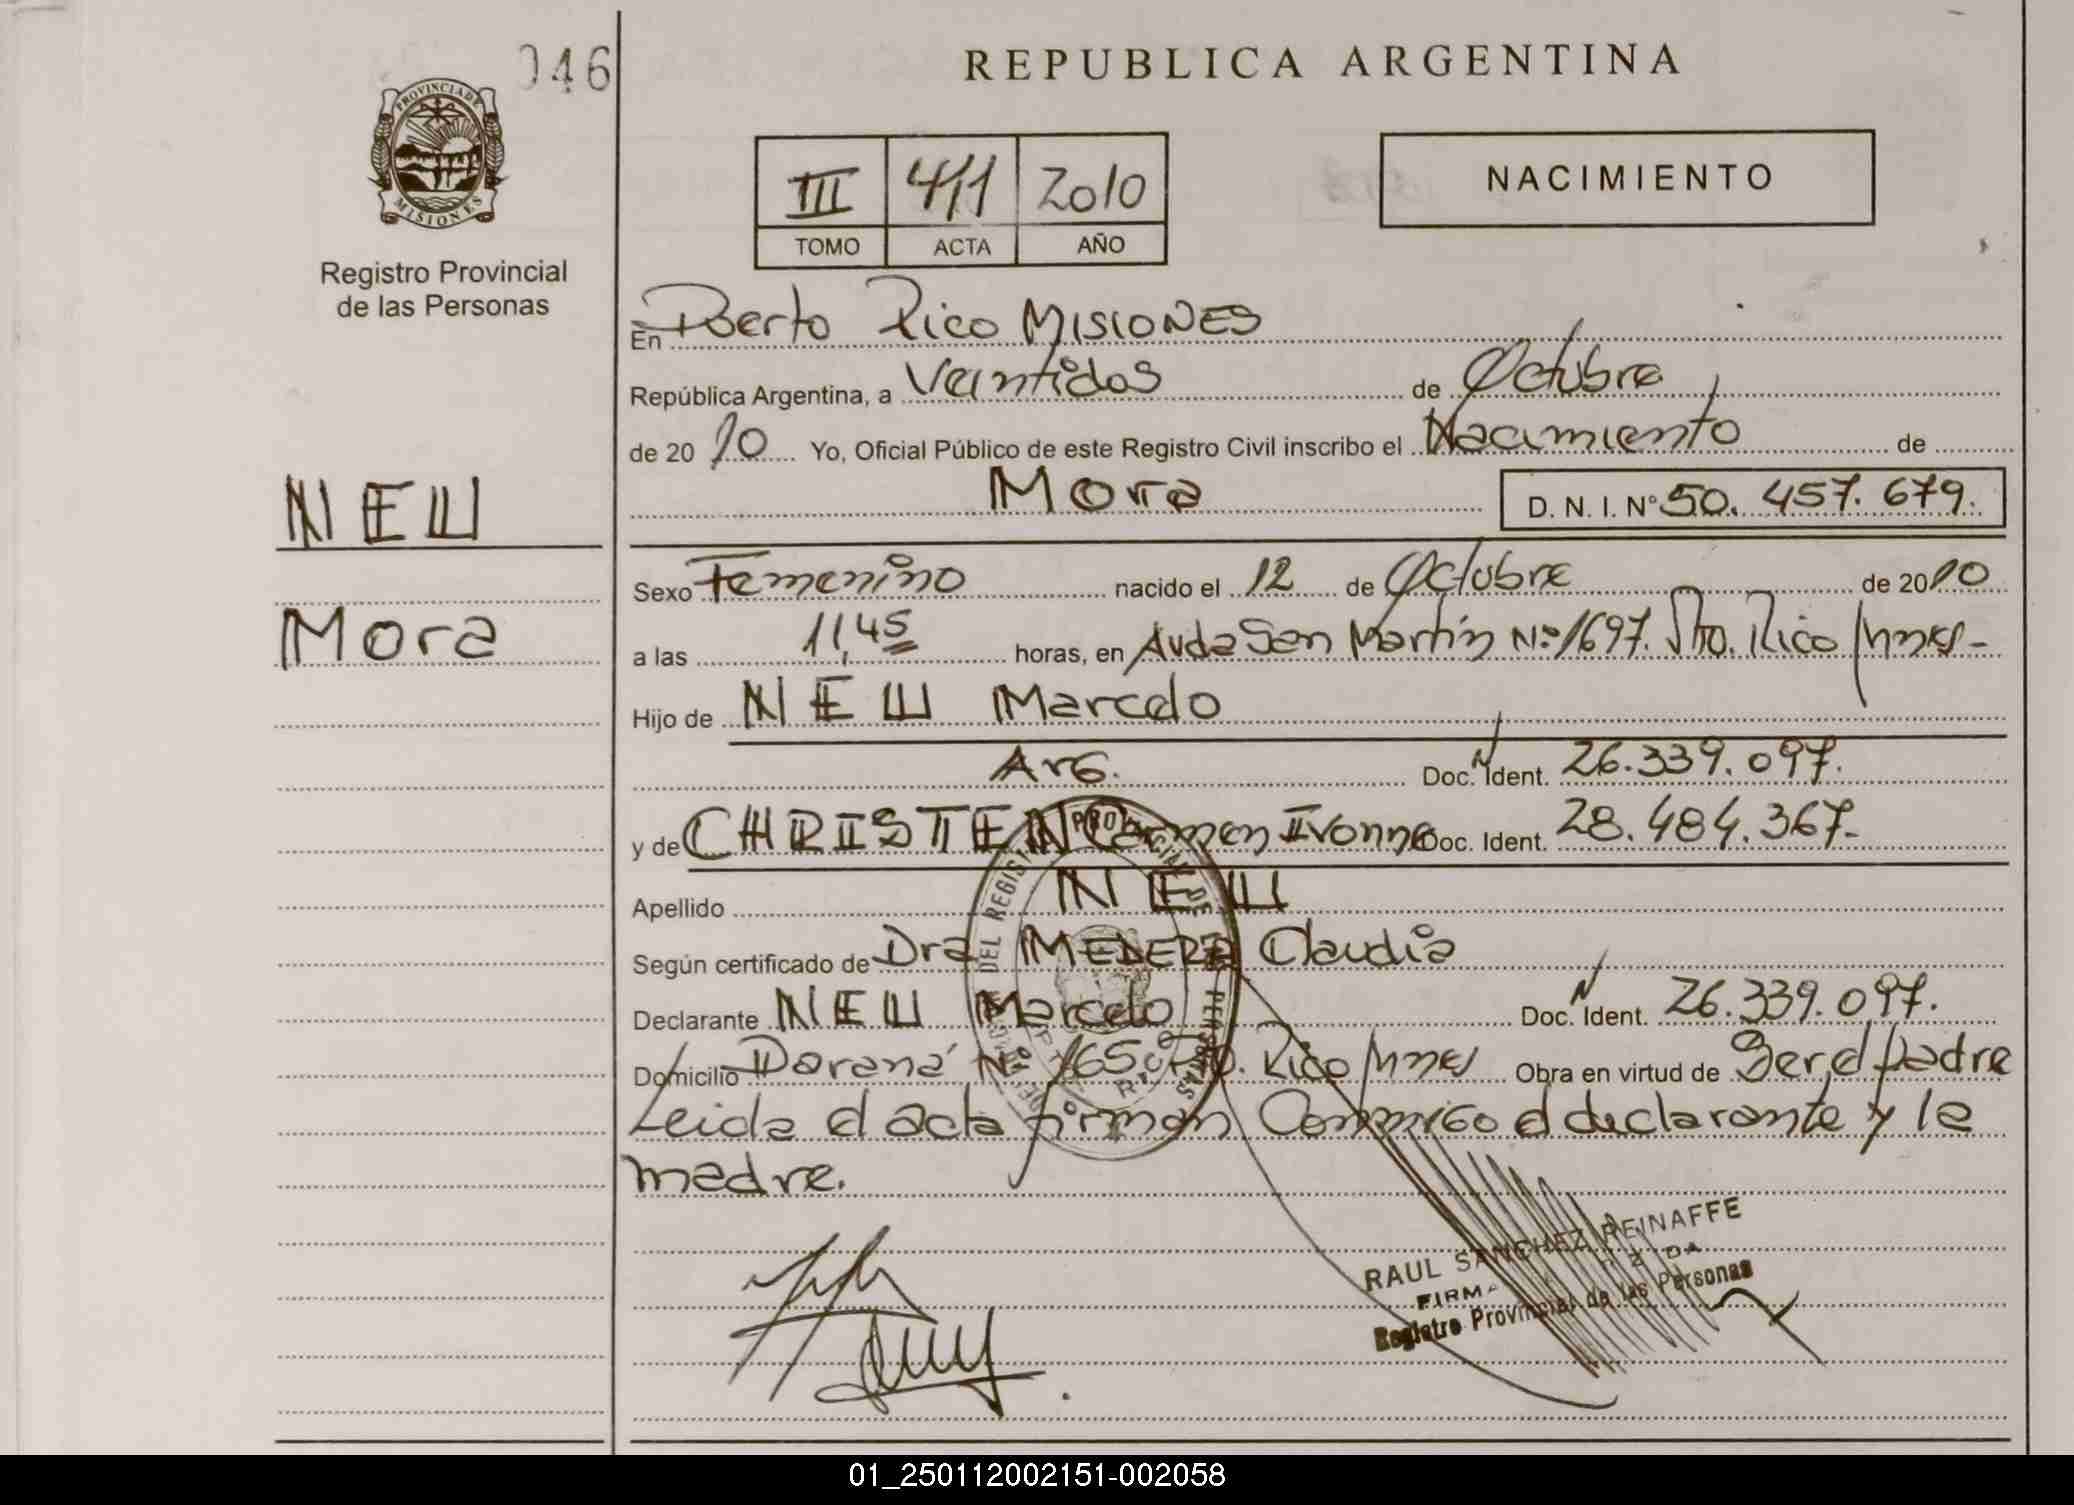 046
REPUBLICA ARGENTINA
PROVINCIA DE
MISIONES
Registro Provincial
de las Personas
III 411 2010
TOMO ACTA AÑO
NACIMIENTO
En Puerto Rico MISIONES
República Argentina, a Veintidos de Octubre
de 20 10 Yo, Oficial Público de este Registro Civil inscribo el Nacimiento de
NEU
Mora D. N. I. Nº 50. 457. 679.
Mora
Sexo Femenino nacido el 12 de Octubre de 2010
a las 11,45 horas, en Avda San Martín Nº 1697. Pto. Rico Mnes-
Hijo de NEU Marcelo
Arg. Doc. N Ident. 26.339.097.
y de CHRISTEN Carmen Ivonne Doc. Ident. 28.484.367-
Apellido NEU
Según certificado de Dra Claudia
Declarante NEU Marcelo Doc. N Ident. 26.339.097.
Domicilio Paraná Nº 165. Pto. Rico Mnes Obra en virtud de Ser el padre
Leida el acta firman Conmigo el declarante y la
madre.
RAUL SANCHEZ REINAFFE
Registro Provincial de las Personas
01_250112002151-002058